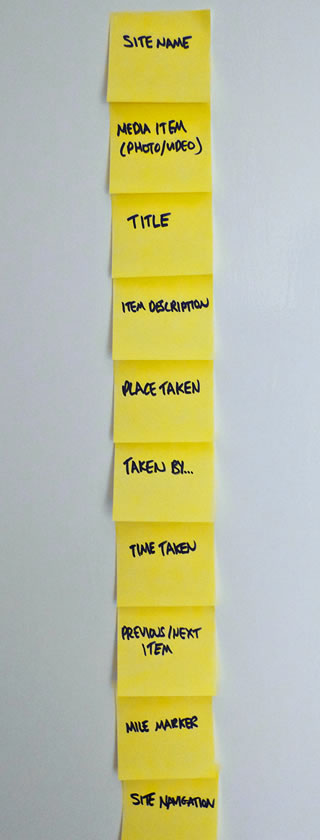 SITE NAME
MEDIA ITEM
(PHOTO/VIDEO)
TITLE
ITEM DESCRIPTION
PLACE TAKEN
TAKEN BY...
TIME TAKEN
PREVIOUS/NEXT
ITEM
MILE MARKER
SITE NAVIGATION